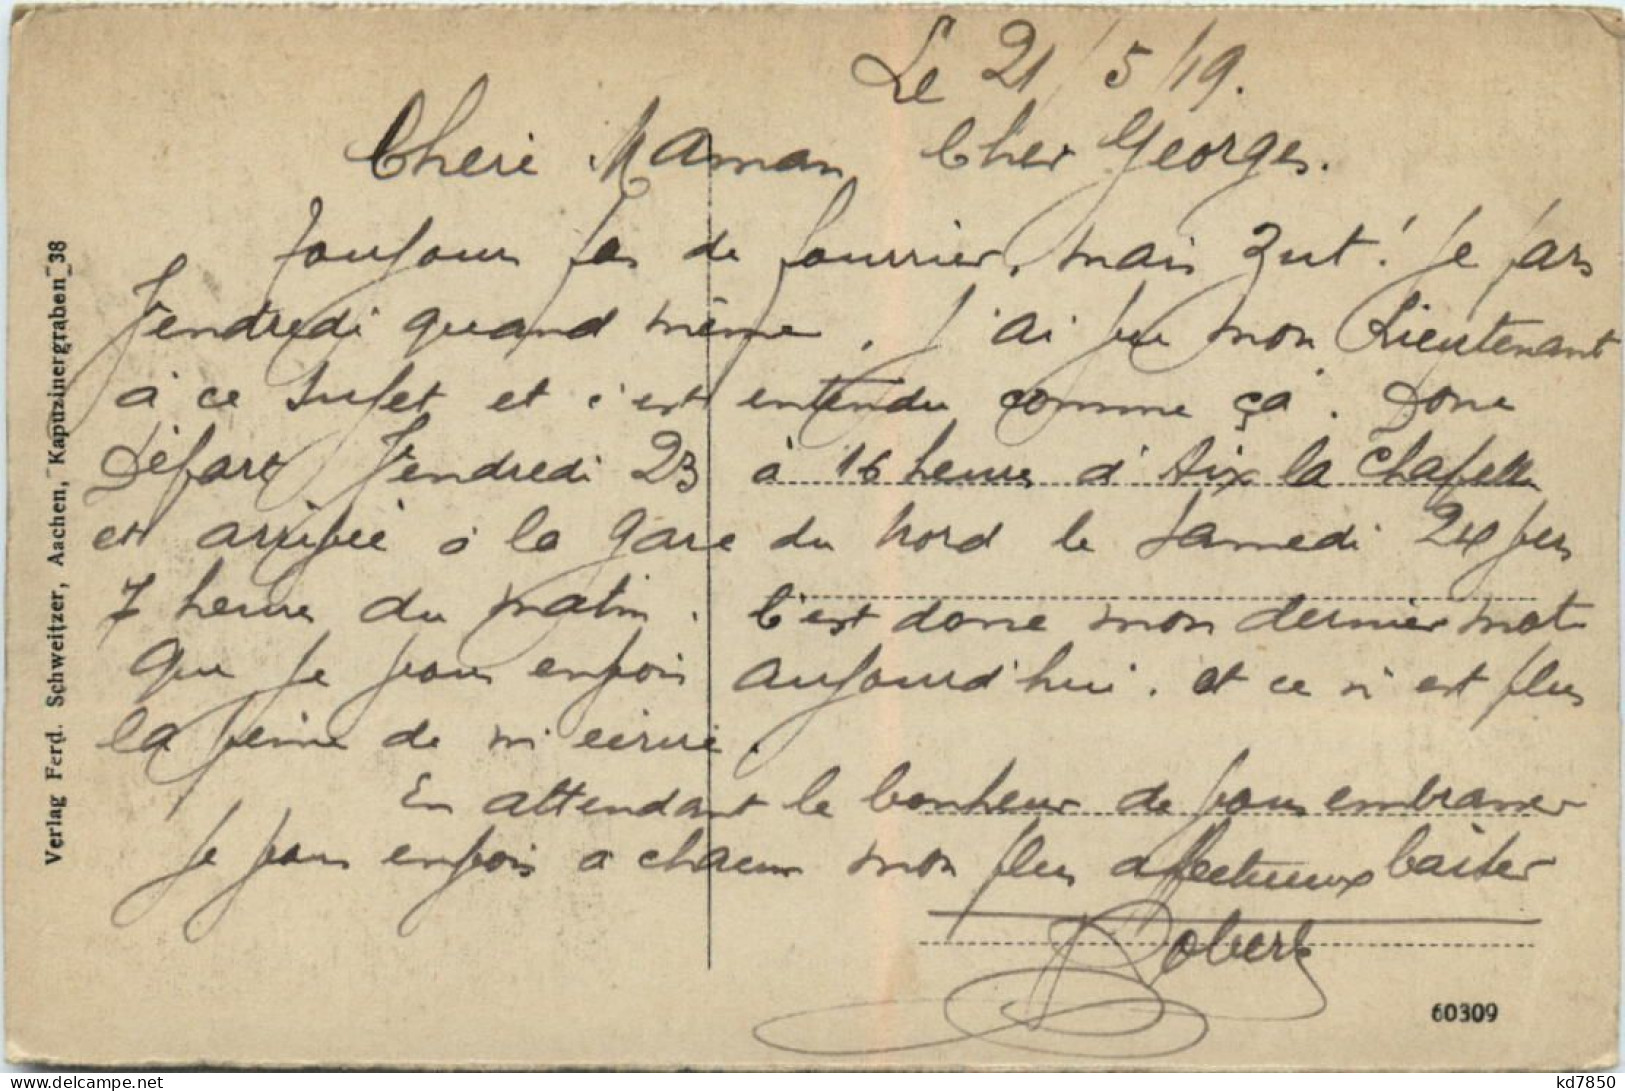 Le 21/5/19.
Cheré Maman Cher Georges.
Toujours pas de courrier, mais zut ! Je pars
Vendredi quand même. J'ai vu mon Lieutenant
à ce sujet et c'est entendu comme ça. Donc
Départ Vendredi 23 à 16 heures d'Aix la Chapelle
et arrivée à la gare du Nord le Samedi 24 vers
7 heures du matin. C'est donc mon dernier mot
que je vous envois aujourd'hui. et ce n'est plus
la peine de m'écrire.
En attendant le bonheur de vous embrasser
Je vous envois a chacun mon plus affectueux baiser
Robert
Verlag Ferd. Schweitzer, Aachen, Kapuzinergraben 38
60309
kd7850